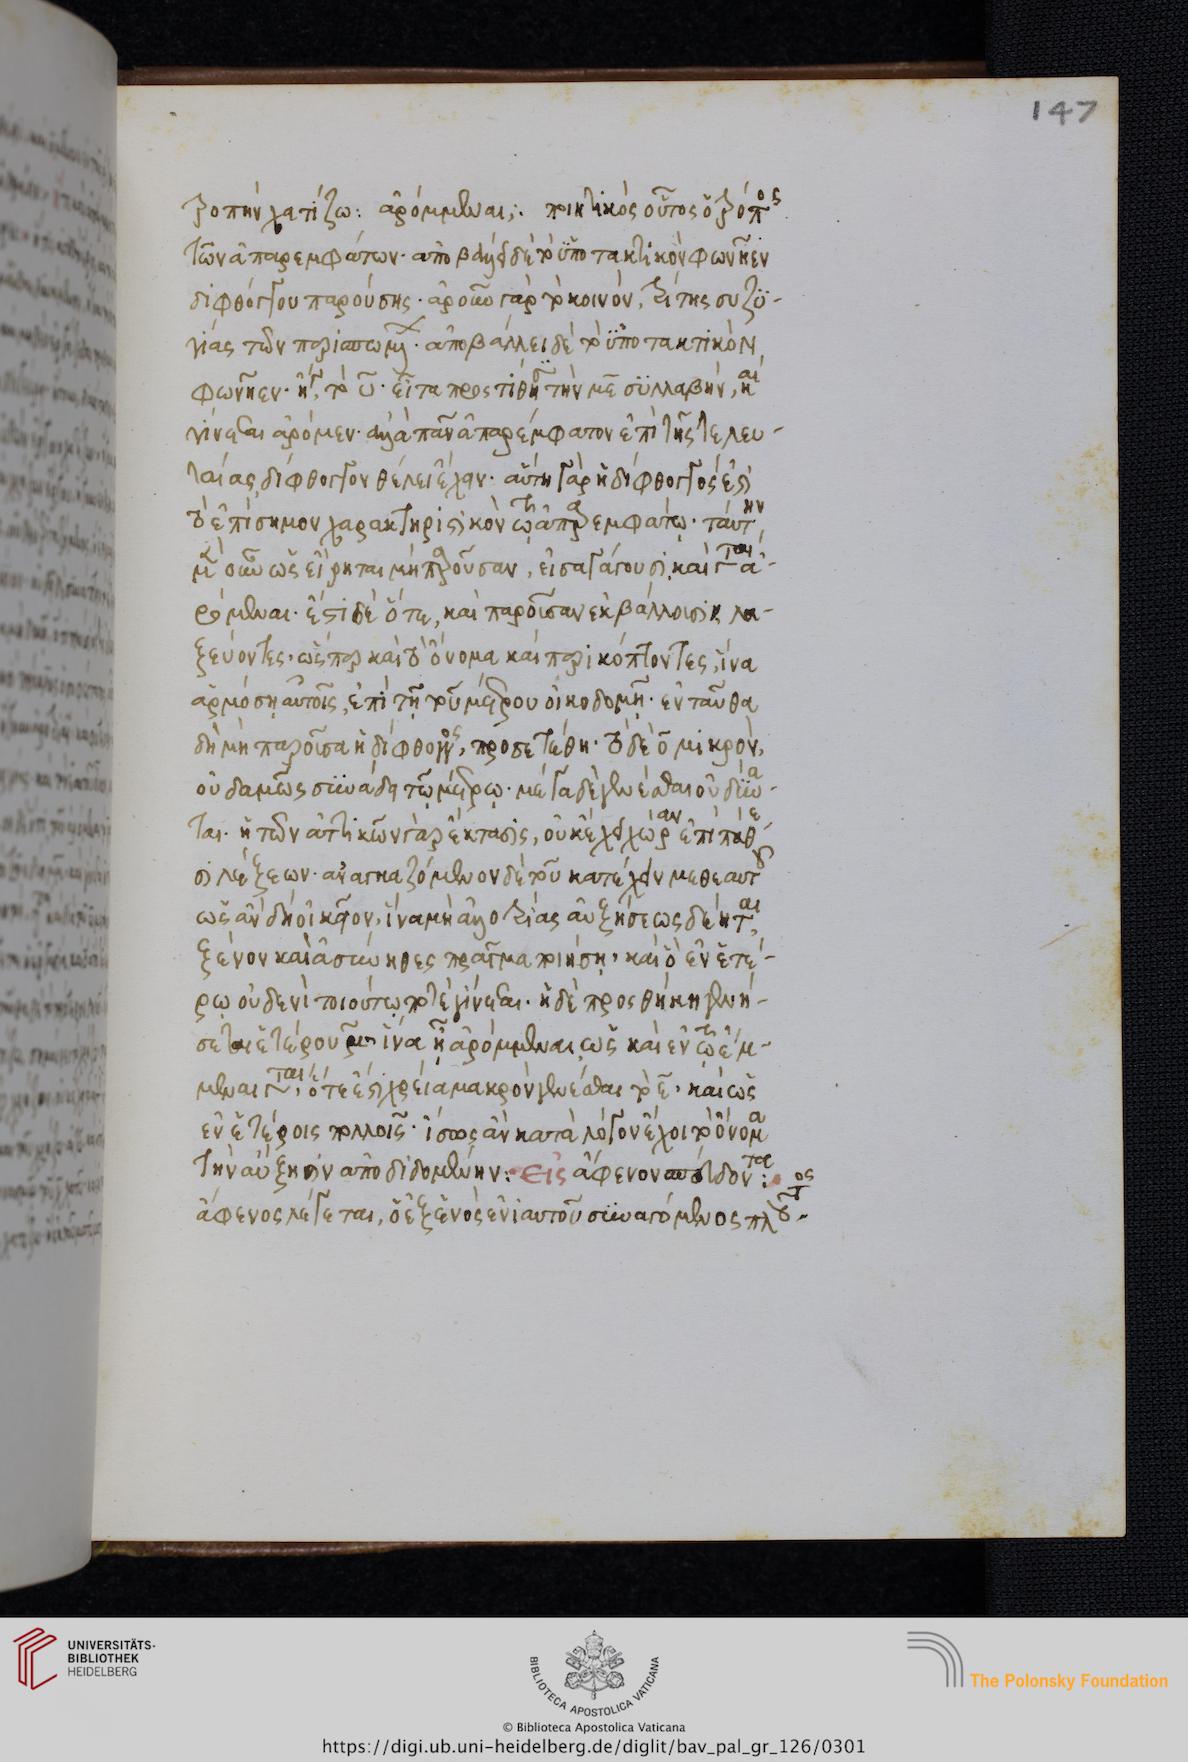 147
τροπὴν χατίζω: ἀρόμμεναι: ποιητικὸς οὗτος ὁ τρόπος
τῶν ἀπαρεμφάτων· ἀποβάλλει δὲ τὸ ὑποτακτικὸν φωνῆεν
διφθόγγου παρούσης· ἀροῶ γὰρ τὸ κοινὸν, τρίτης συζυ-
γίας τῶν περισπωμένων· ἀποβάλλει δὲ τὸ ὑποτακτικὸν
φωνῆεν· τὸ υ· εἶτα προστίθησι τὴν με συλλαβὴν, καὶ
γίνεται ἀρόμεν· ἀλλὰ πᾶν ἀπαρέμφατον ἐπὶ τῆς τελευ-
ταίας δίφθογγον θέλει ἔχειν· αὕτη γὰρ ἡ δίφθογγός ἐστι
τὸ ἐπίσημον χαρακτηριστικὸν τῶ ἀπαρεμφάτω· ταύτην
οὖν ὡς εἴρηται μὴ παροῦσαν, εἰσαγάγουσι καὶ γίνεται ἀ-
ρόμμεναι· ἔστι δὲ ὅτε, καὶ παροῦσαν ἐκβάλλουσι λα-
ξεύοντες, ὥσπερ καὶ τὸ ὄνομα καὶ περικόπτοντες, ἵνα
ἁρμόση αὐτοῖς, ἐπὶ τῇ τοῦ μέτρου οἰκοδομῇ· ἐνταῦθα
δὴ μὴ παροῦσα ἡ δίφθογγος, προσετέθη· τὸ δὲ ο μικρὸν,
οὐδαμῶς συνάδει τῷ μέτρῳ· μέγα δὲ γενέσθαι οὐ δύνα-
ται· ἡ τῶν ἀττικῶν γὰρ ἔκτασις, οὐκ ἔχει χώραν ἐπὶ πάθε-
σι λέξεων· ἀναγκαζόμενον δὲ τοῦ κατέχειν μεθ᾽ ἑαυτοῦ
ὡς ἂν δὴ οἰκεῖον, ἵνα μὴ ἀλλοτρίας αὐξήσεως δέηται,
ξένον καὶ ἀσύνηθες πρᾶγμα ποιήση, καὶ ὃ ἐν ἑτέ-
ρῳ οὐδενὶ τοιούτῳ ποτὲ γίνεται· ἡ δὲ προσθήκη γενή-
σεται ἑτέρου μ ἵνα ᾖ ἀρόμμεναι ὡς καὶ ἐν τῶ ἔμ-
μεναι γίνεται, ὅτε ἐστὶ χρεία μακρὸν γενέσθαι τὸ ε, καὶ ὡς
ἐν ἑτέροις πολλοῖς· ἴσως ἂν κατὰ λόγον ἔχοι τὸ ὄνομα
τὴν αὔξησιν ἀποδιδομένην: Εἰς ἄφενον σπεύδοντα:
ἄφενος λέγεται, ὁ ἐξ ἑνὸς ἐνιαυτοῦ συναγόμενος πλοῦτος
UNIVERSITÄTS-
BIBLIOTHEK
HEIDELBERG
BIBLIOTECA APOSTOLICA VATICANA
The Polonsky Foundation
© Biblioteca Apostolica Vaticana
https://digi.ub.uni-heidelberg.de/diglit/bav_pal_gr_126/0301